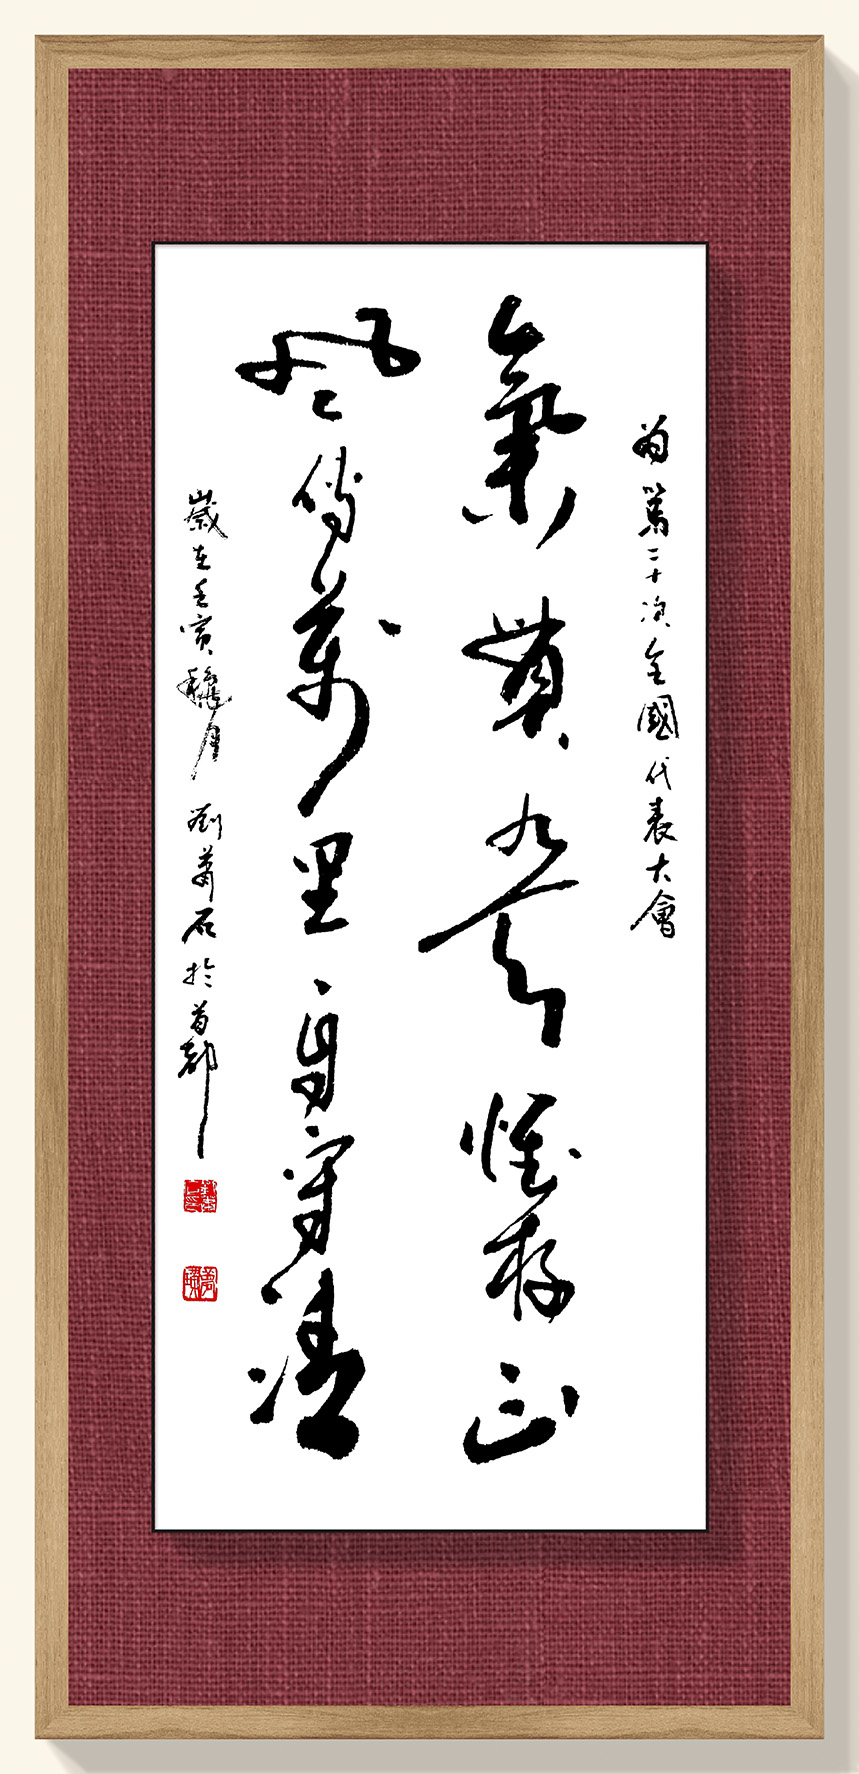 為第二十次全國代表大會
氣貫九懷存正
風傳萬里身守清
歲在壬寅穐月劉蕭石於首都